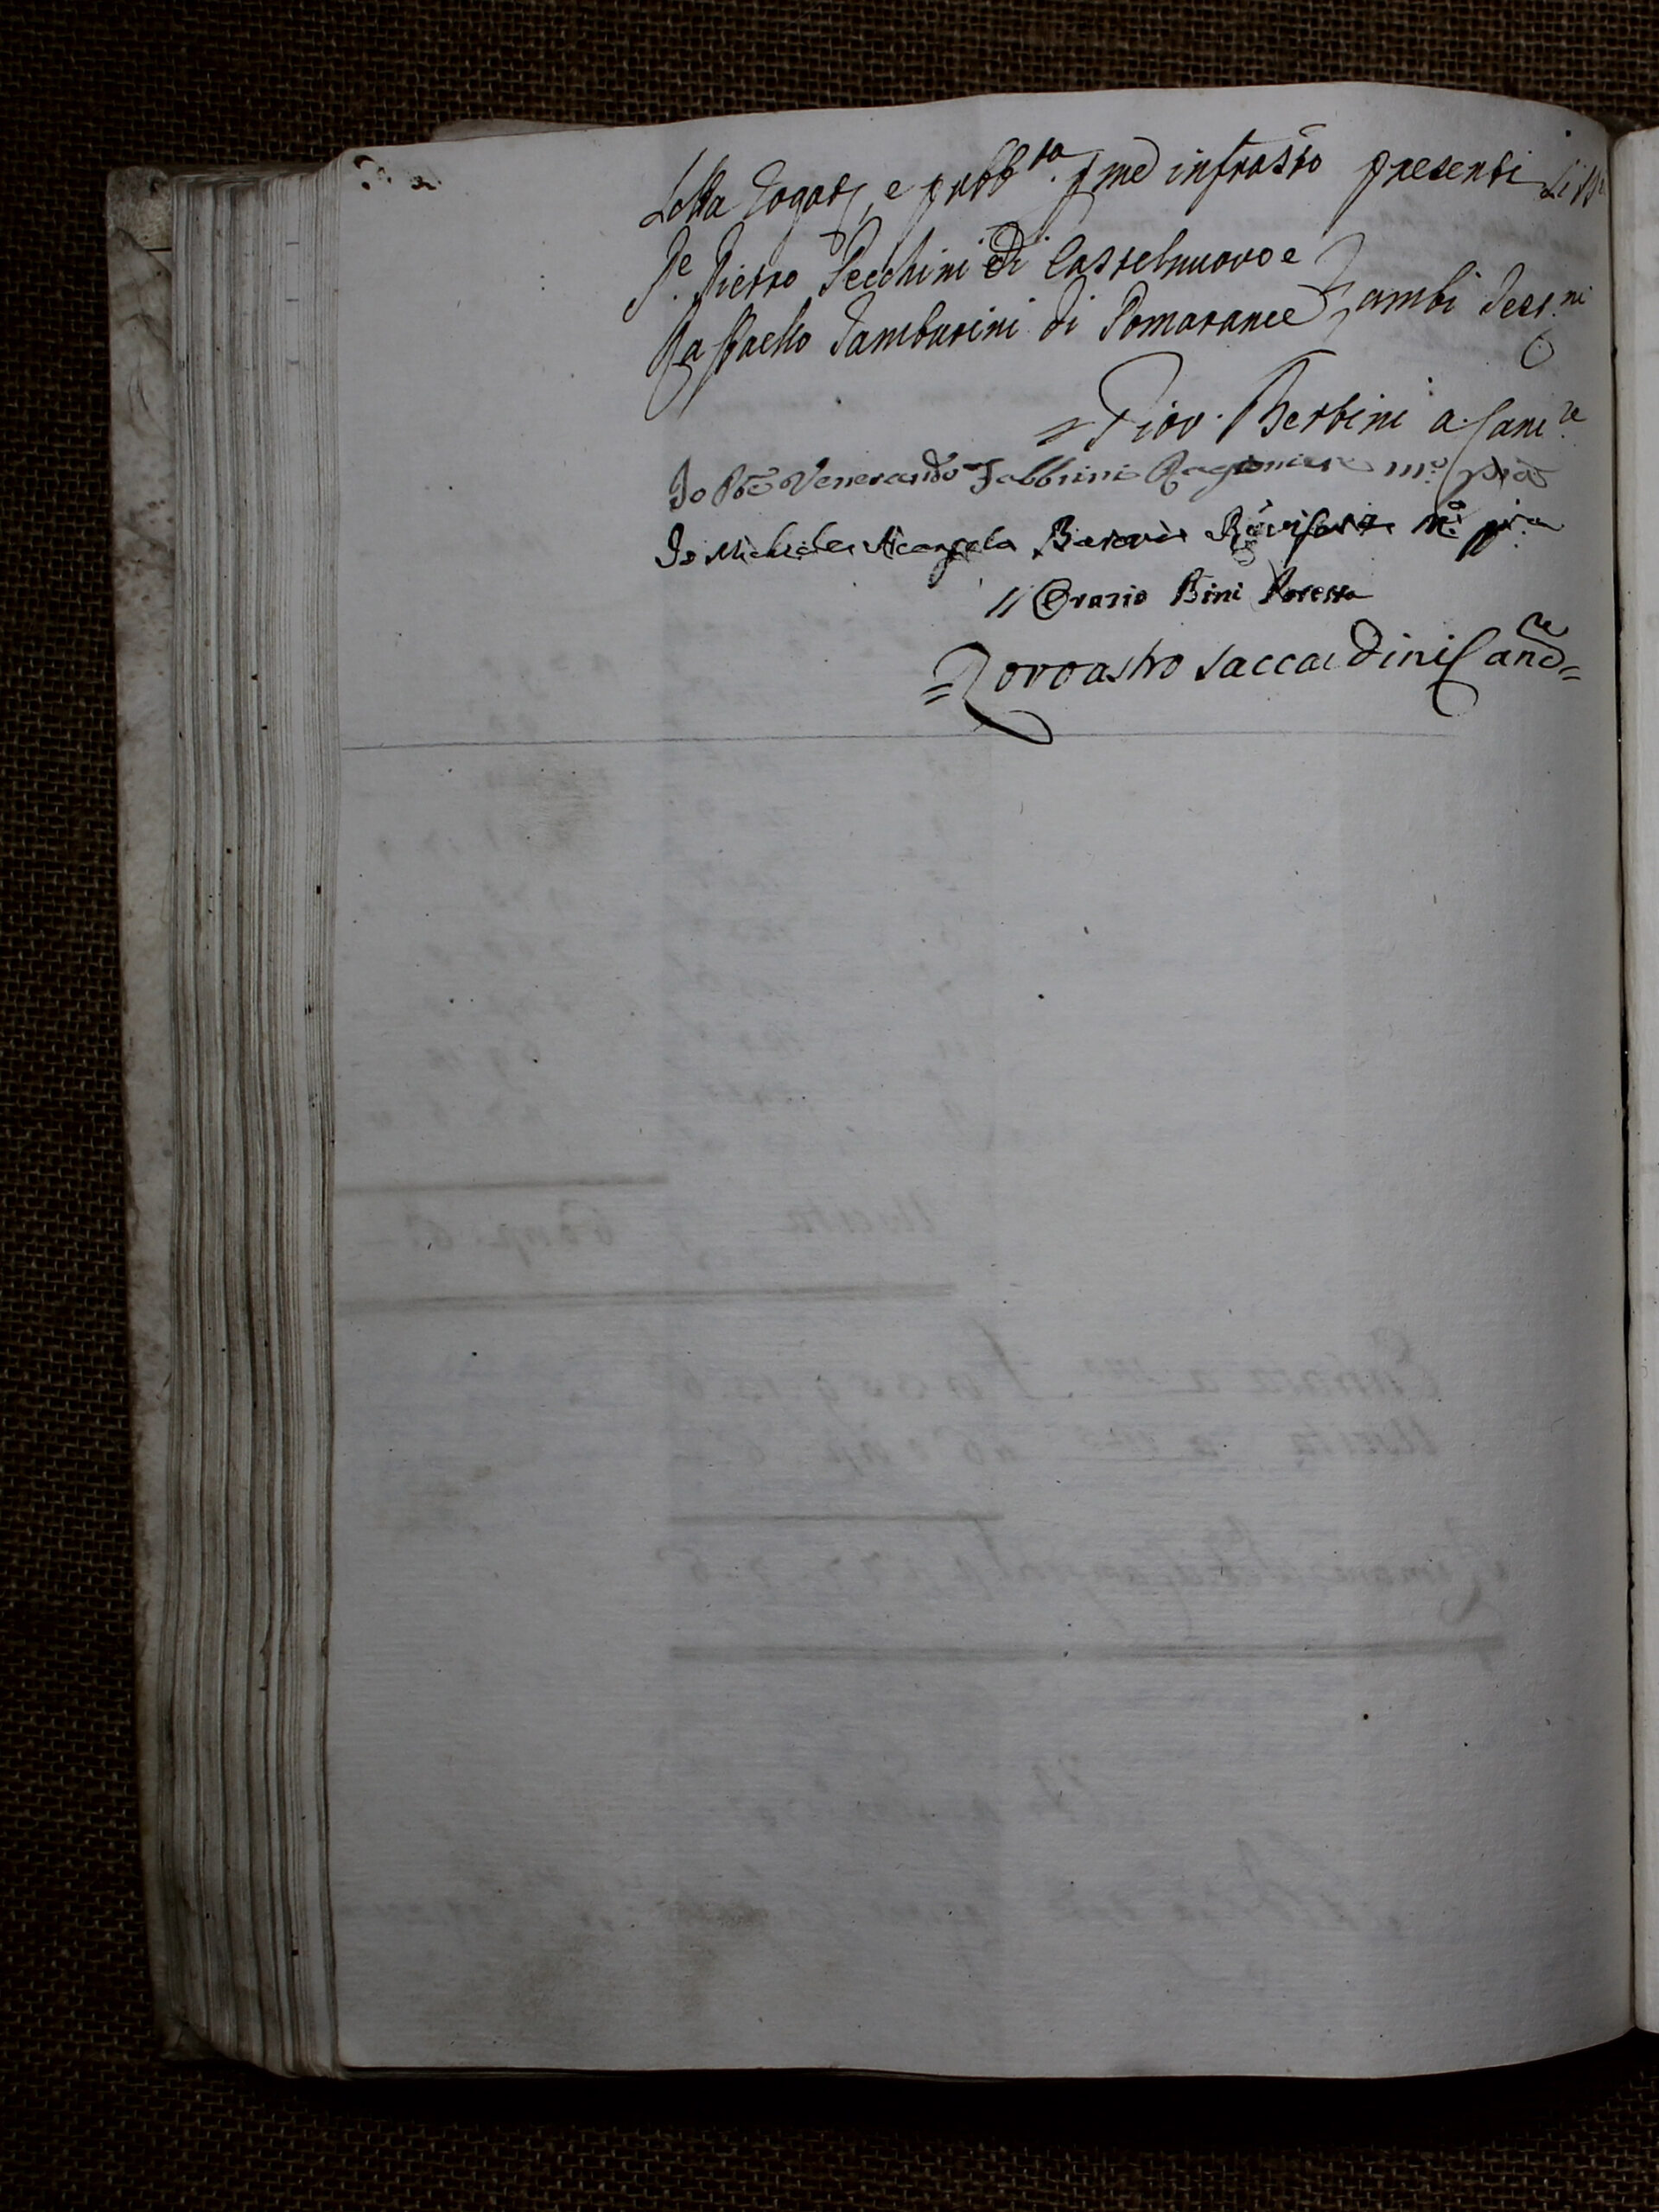 Letta rogata, e pubb.ta p me infrasto presenti li
S.e Pietro Secchini di Castelnuovo e
Raffaello Tamburini di Pomarance ambi test.ni
= Giov. Berbini a. Canc.re
Io Pre Venerando Fabbrini Ragioniere m.o ppa
Io Michele Arcangelo Baroni Revisore m.o ppa
// Orazio Bini Potestà
= Zoroastro Saccardini Canc.re =